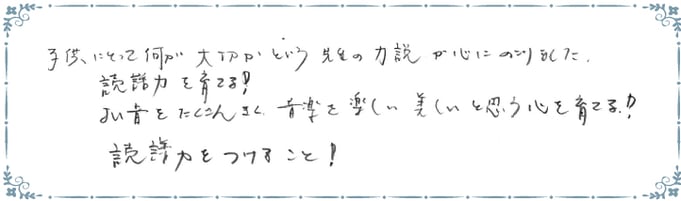 子供にとって何が大切かという先生の力説が心にのこりました。
読譜力を育てる!
よい音をたくさんきく 音楽を楽しい美しいと思う心を育てる!
読譜力をつけること!